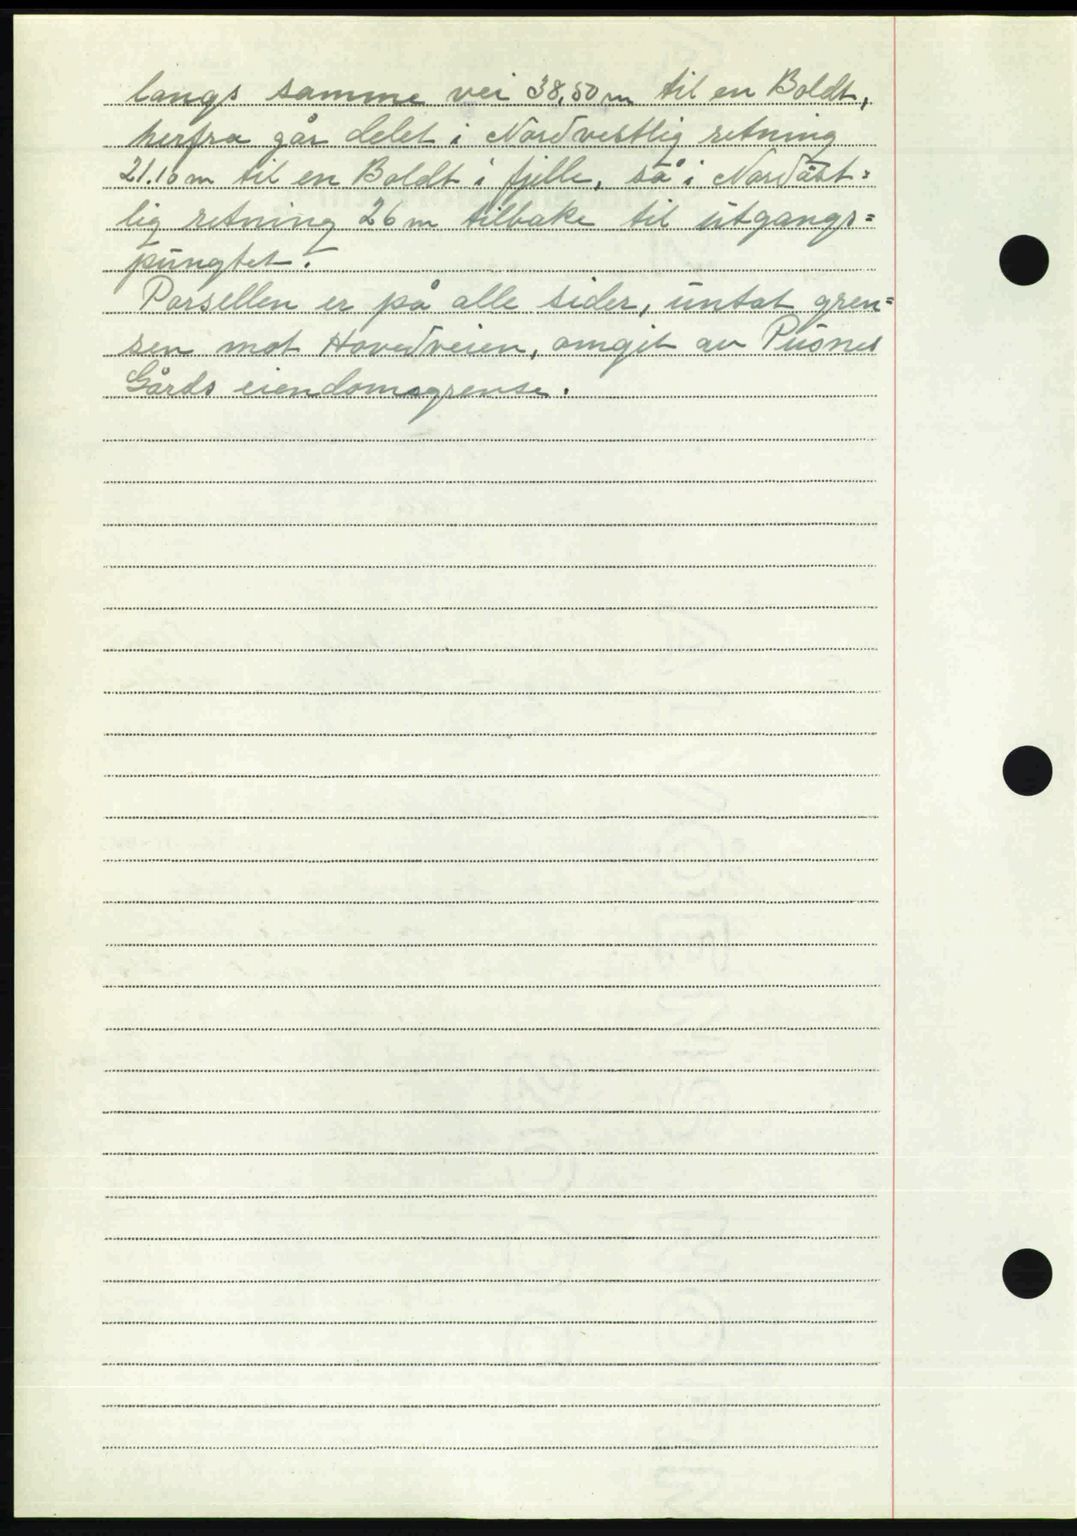 langs samme vei 38,50 m til en Boldt,
herfra går delet i Nordvestlig retning
21.10 m til en Boldt i fjelle, så i Nordöst=
lig retning 26 m tilbake til utgangs=
pungtet.
Parsellen er på alle sider, untat gren=
sen mot Hovedveien, omgit av Pusnes
Gårds eiendomsgrense.